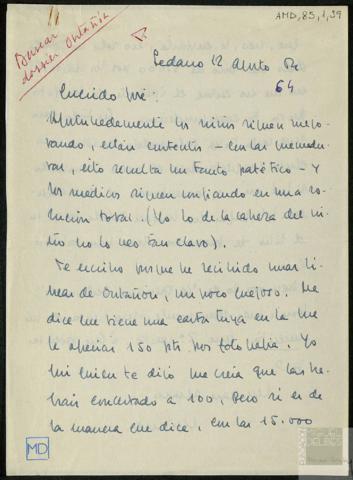 AMD, 85, 1, 39
Buscar
dossier Ontañón
Sedano 12 agosto
64
Querido José:
Afortunadamente los niños siguen mejo-
rando, están contentos – con las
esto resulta un tanto patético – y
los médicos siguen confiando en una so-
lución total. (Yo lo de la cabeza del ni-
ño no lo veo tan claro).
Te escribo porque he recibido unas lí-
neas de Ontañón, un poco mejor. Me
dice que tiene una carta tuya en la que
le ofrecías 150 pts. por fotografía. Yo
creía que las ha-
bíais concertado a 100. Pero si es de
la manera que dice, con las 15.000
MD
DELIBES